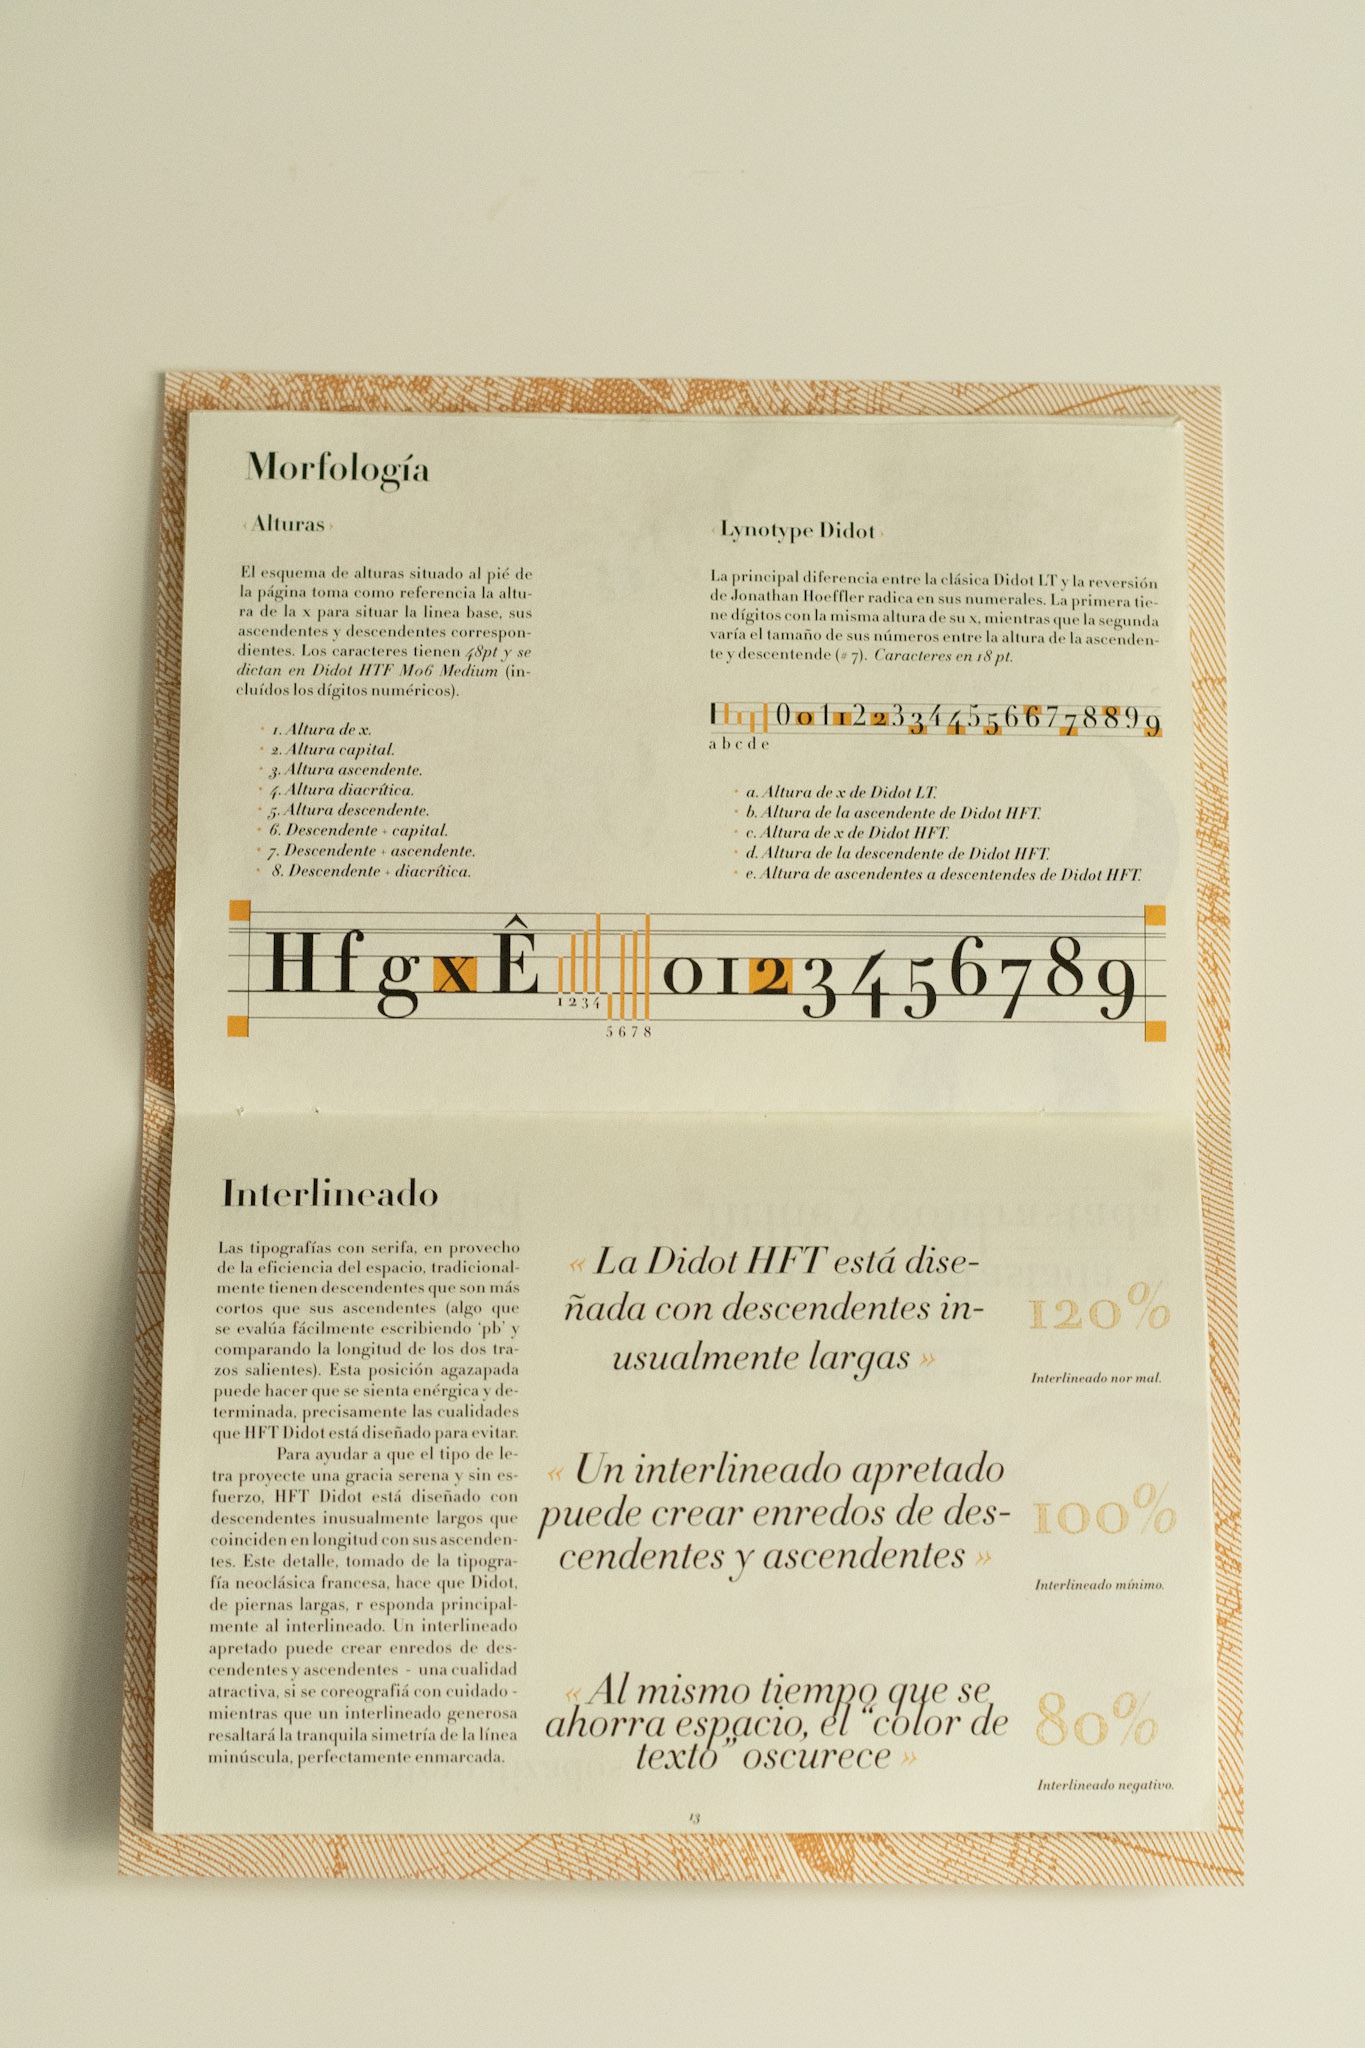 Morfología
‹ Alturas ›
El esquema de alturas situado al pié de
la página toma como referencia la altu-
ra de la x para situar la linea base, sus
ascendentes y descendentes correspon-
dientes. Los caracteres tienen 48pt y se
dictan en Didot HTF M06 Medium (in-
cluídos los dígitos numéricos).
· 1. Altura de x.
· 2. Altura capital.
· 3. Altura ascendente.
· 4. Altura diacrítica.
· 5. Altura descendente.
· 6. Descendente + capital.
· 7. Descendente + ascendente.
· 8. Descendente + diacrítica.
‹ Lynotype Didot ›
La principal diferencia entre la clásica Didot LT y la reversión
de Jonathan Hoeffler radica en sus numerales. La primera tie-
ne dígitos con la misma altura de su x, mientras que la segunda
varía el tamaño de sus números entre la altura de la ascenden-
te y descentende (# 7). Caracteres en 18 pt.
00112233445566778899
a b c d e
· a. Altura de x de Didot LT.
· b. Altura de la ascendente de Didot HFT.
· c. Altura de x de Didot HFT.
· d. Altura de la descendente de Didot HFT.
· e. Altura de ascendentes a descentendes de Didot HFT.
HfgxÊ 0123456789
1 2 3 4
5 6 7 8
Interlineado
Las tipografías con serifa, en provecho
de la eficiencia del espacio, tradicional-
mente tienen descendentes que son más
cortos que sus ascendentes (algo que
se evalúa fácilmente escribiendo ‘pb’ y
comparando la longitud de los dos tra-
zos salientes). Esta posición agazapada
puede hacer que se sienta enérgica y de-
terminada, precisamente las cualidades
que HFT Didot está diseñado para evitar.
Para ayudar a que el tipo de le-
tra proyecte una gracia serena y sin es-
fuerzo, HFT Didot está diseñado con
descendentes inusualmente largos que
coinciden en longitud con sus ascenden-
tes. Este detalle, tomado de la tipogra-
fía neoclásica francesa, hace que Didot,
de piernas largas, r esponda principal-
mente al interlineado. Un interlineado
apretado puede crear enredos de des-
cendentes y ascendentes - una cualidad
atractiva, si se coreografiá con cuidado -
mientras que un interlineado generosa
resaltará la tranquila simetría de la línea
minúscula, perfectamente enmarcada.
« La Didot HFT está dise-
ñada con descendentes in-
usualmente largas »
120%
Interlineado nor mal.
« Un interlineado apretado
puede crear enredos de des-
cendentes y ascendentes »
100%
Interlineado mínimo.
« Al mismo tiempo que se
ahorra espacio, el “color de
texto” oscurece »
80%
Interlineado negativo.
13